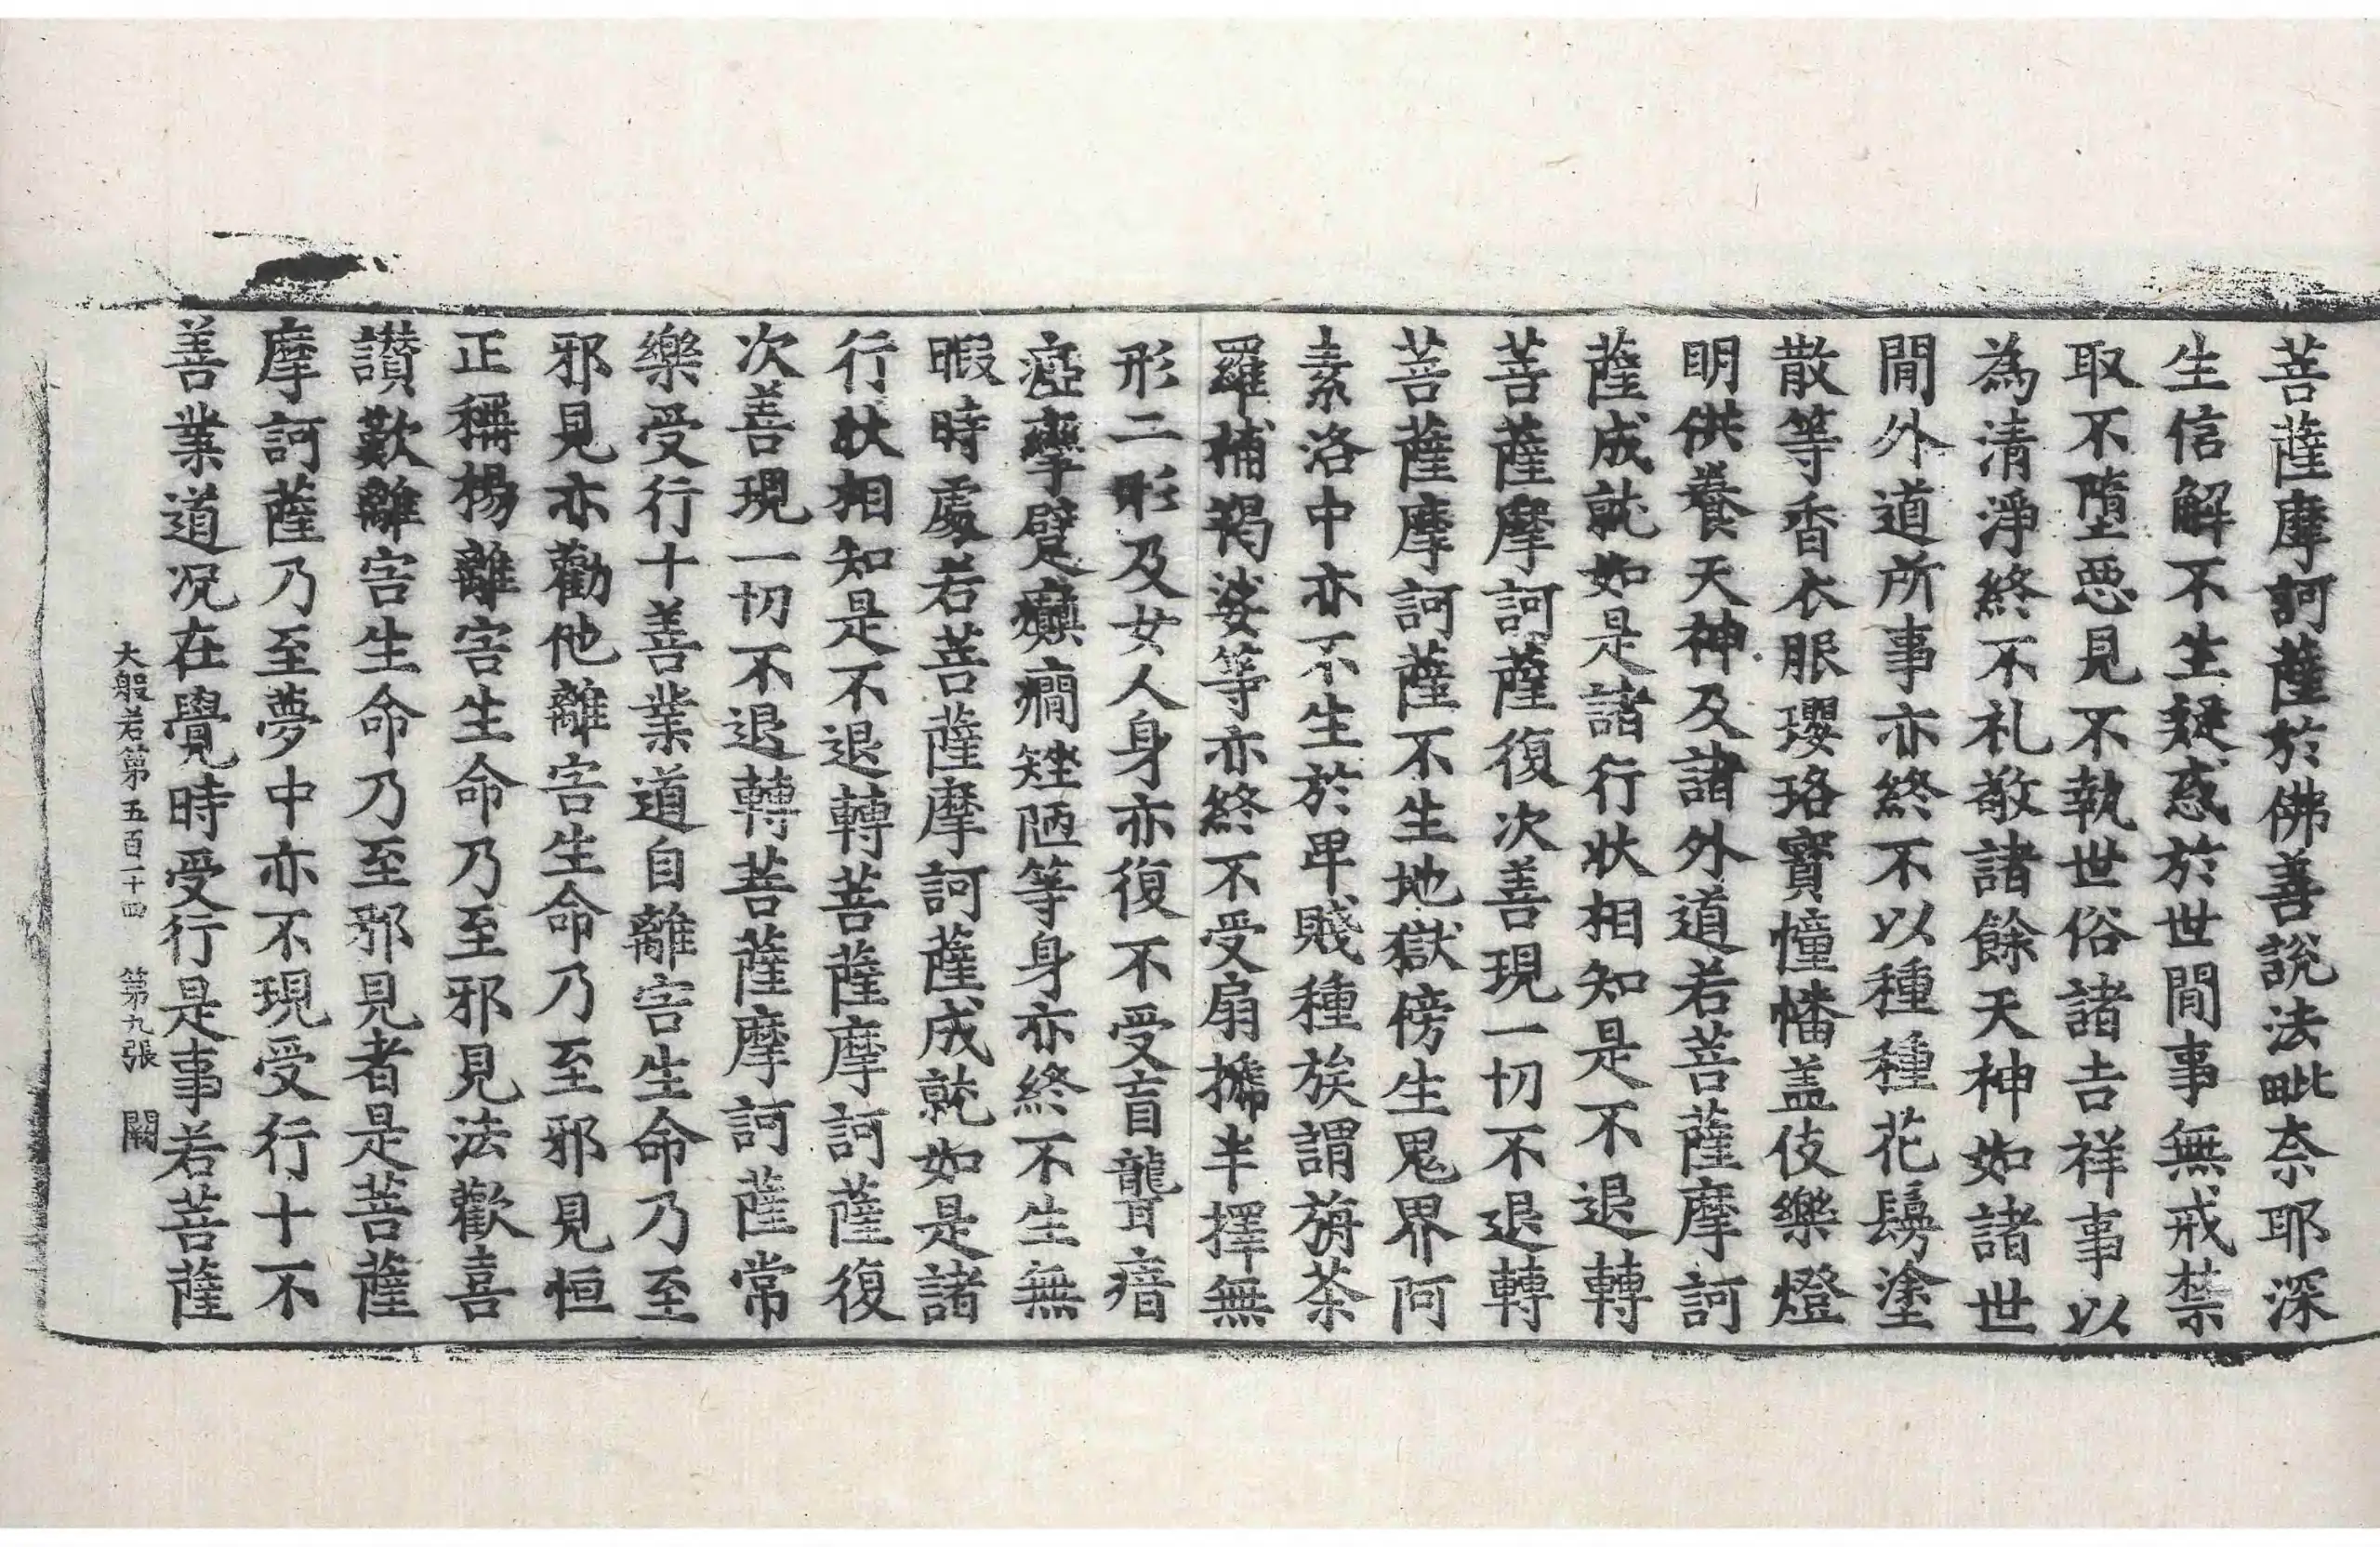 菩薩摩訶薩於佛善說法毗奈耶深
生信解不生疑惑於世間事無戒禁
取不墮惡見不執世俗諸吉祥事以
為清淨終不礼敬諸餘天神如諸世
間外道所事亦終不以種種花鬘塗
散等香衣服瓔珞寶幢幡盖伎樂燈
明供養天神及諸外道若菩薩摩訶
薩成就如是諸行狀相知是不退轉
菩薩摩訶薩復次善現一切不退轉
菩薩摩訶薩不生地獄傍生鬼界阿
素洛中亦不生於卑賤種族謂旃茶
羅補羯娑等亦終不受扇搋半擇無
形二形及女人身亦復不受盲聾瘖
瘂攣躄癲癇矬陋等身亦終不生無
暇時處若菩薩摩訶薩成就如是諸
行狀相知是不退轉菩薩摩訶薩復
次善現一切不退轉菩薩摩訶薩常
樂受行十善業道自離害生命乃至
邪見亦勸他離害生命乃至邪見恒
正稱揚離害生命乃至邪見法歡喜
讃歎離害生命乃至邪見者是菩薩
摩訶薩乃至夢中亦不現受行十不
善業道況在覺時受行是事若菩薩
大般若第五百一十四 第九張 闕